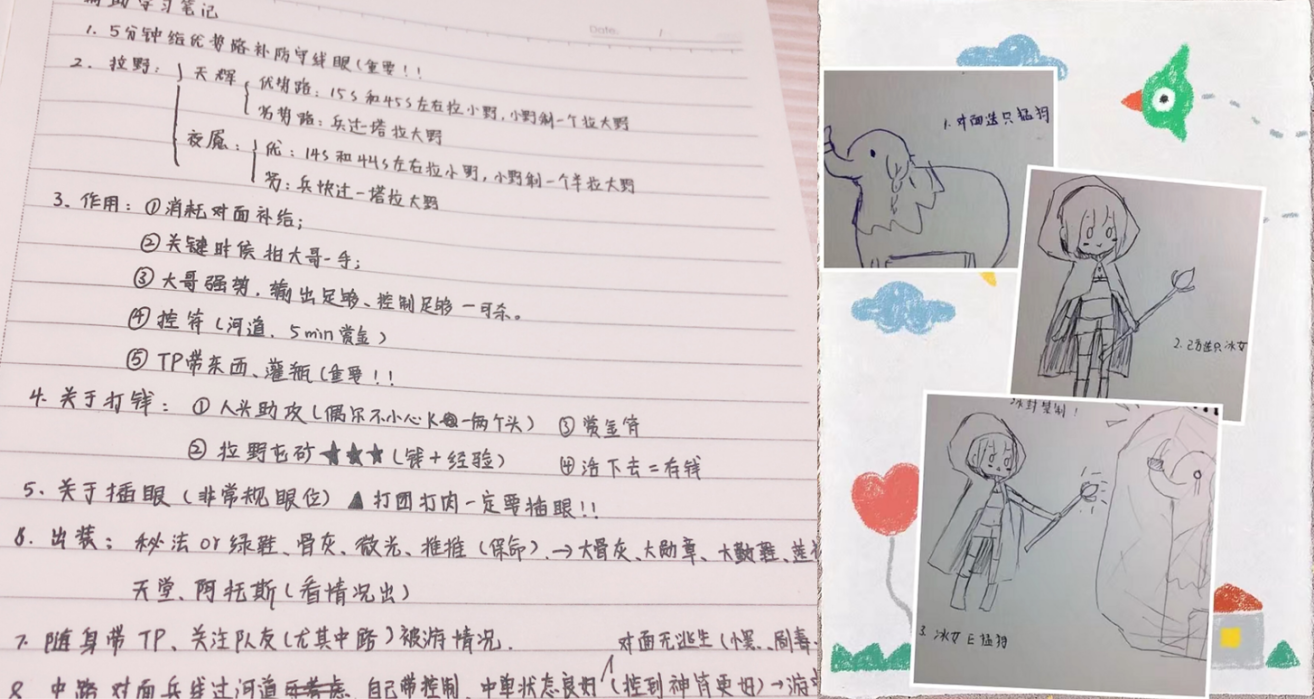 辅助学习笔记
Date. /
1. 5分钟给优势路补防守线眼(重要!!
2. 拉野: 天辉 优势路: 15s和45s左右拉小野,小野剩一个拉大野
劣势路: 兵过一塔拉大野
夜魇: 优: 14s和44s左右拉小野,小野剩一个半拉大野
劣: 兵快过一塔拉大野
3. 作用: ①消耗对面补给;
②关键时候拍大哥一手;
③大哥强势,输出足够、控制足够—可杀。
④控符(河道、5min赏金)
⑤TP带东西、灌瓶(重要!!
4. 关于打钱: ①人头助攻(偶尔不小心K一两个头) ③赏金符
②拉野屯矿★★★(钱+经验) ④活下去=有钱
5. 关于插眼(非常规眼位)▲打团打肉一定要插眼!!
6. 出装: 秘法or绿鞋、骨灰、微光、推推(保命).→大骨灰、大勋章、大鼓鞋、莲
天堂、阿托斯(看情况出)
7. 随身带TP、关注队友(尤其中路)被游情况.
对面无逃生(
8. 中路对面兵线过河道 自己带控制、中单状态良好(控到神符更好)→游
1. 对面选只猛犸
2. 己方选只冰女
冰封禁制!
3. 冰女E猛犸